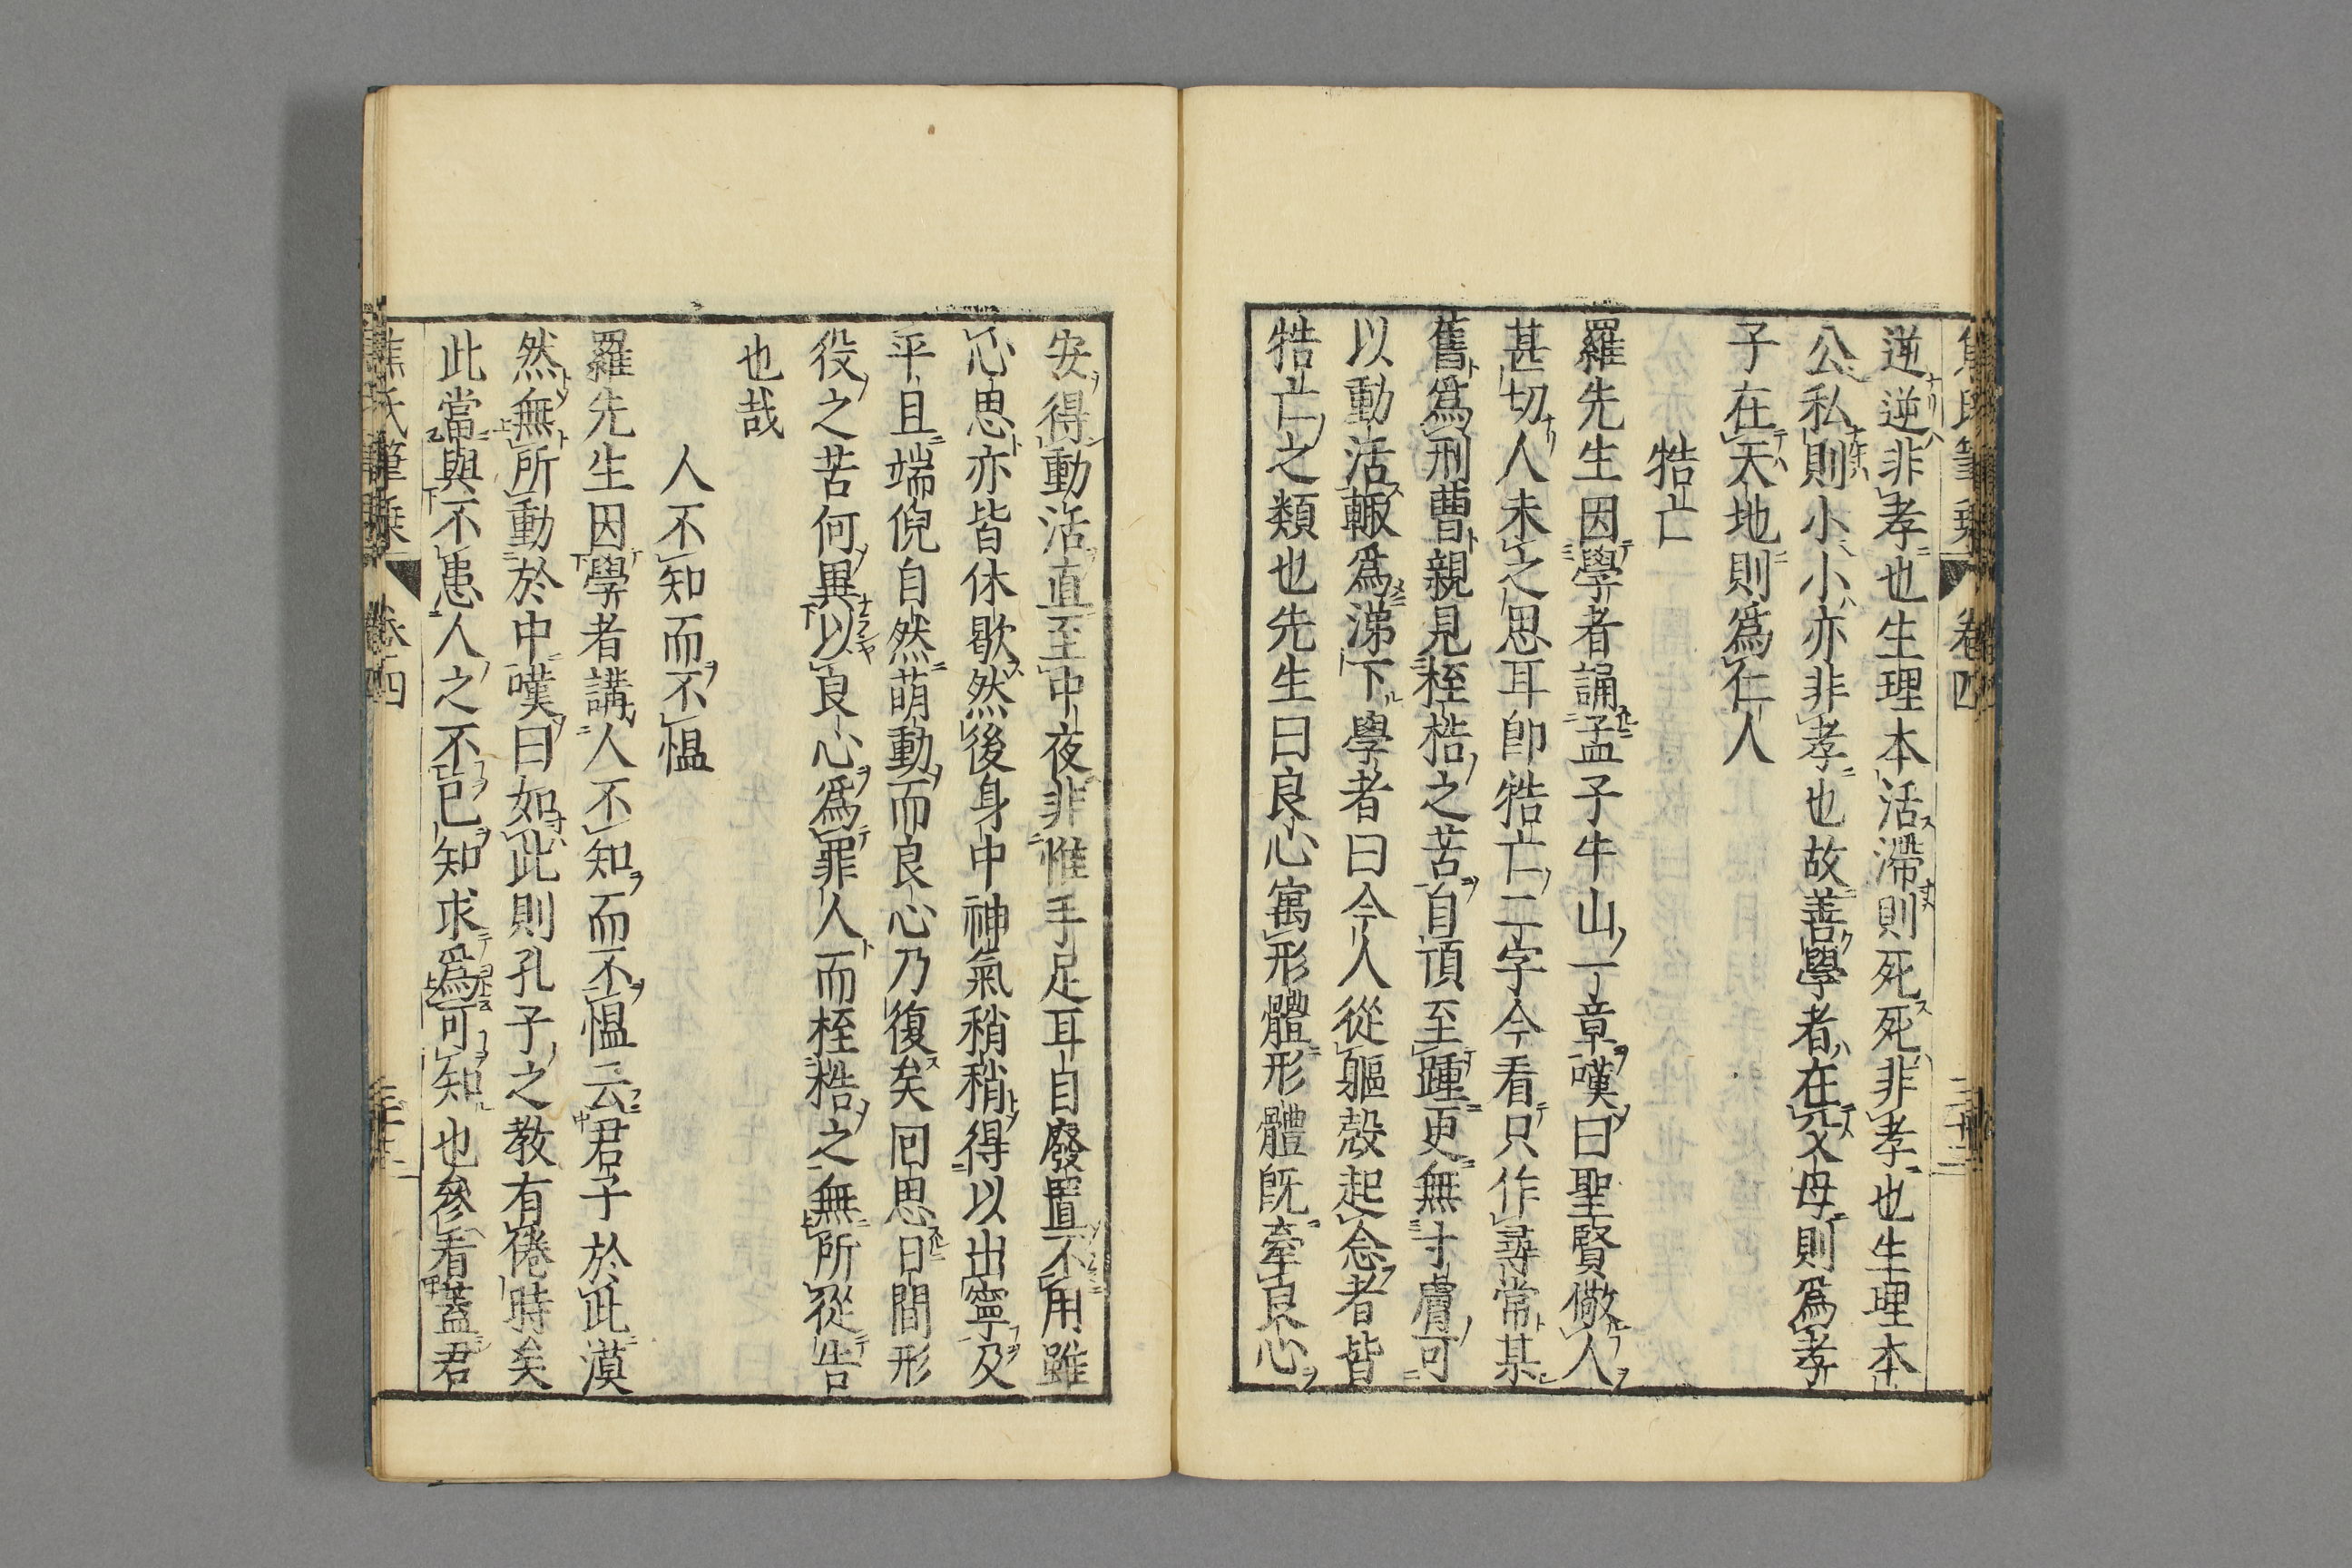 焦氏筆乘　卷四
逆逆非孝也生理本活滯則死死非孝也生理本
公私則小小亦非孝也故善學者在父母則爲孝
子在天地則爲仁人
牿亡
羅先生因學者誦孟子牛山一章嘆曰聖賢儆人
甚切人未之思耳卽牿亡二字今看只作尋常某
舊爲刑曹親見桎梏之苦自頂至踵更無寸膚可
以動活輙爲涕下學者曰今人從軀殼起念者皆
牿亡之類也先生曰良心寓形體形體旣牽良心
安得動活直至中夜非惟手足耳目廢置不用雖
心思亦皆休歇然後身中神氣稍稍得以出寧及
平旦端倪自然萌動而良心乃復矣回思日間形
役之苦何異以良心爲罪人而桎梏之無所從告
也哉
人不知而不慍
羅先生因學者講人不知而不慍云君子於此漠
然無所動於中嘆曰如此則孔子之教有倦時矣
此當與不患人之不已知求爲可知也參看蓋君
焦氏筆乘　卷四